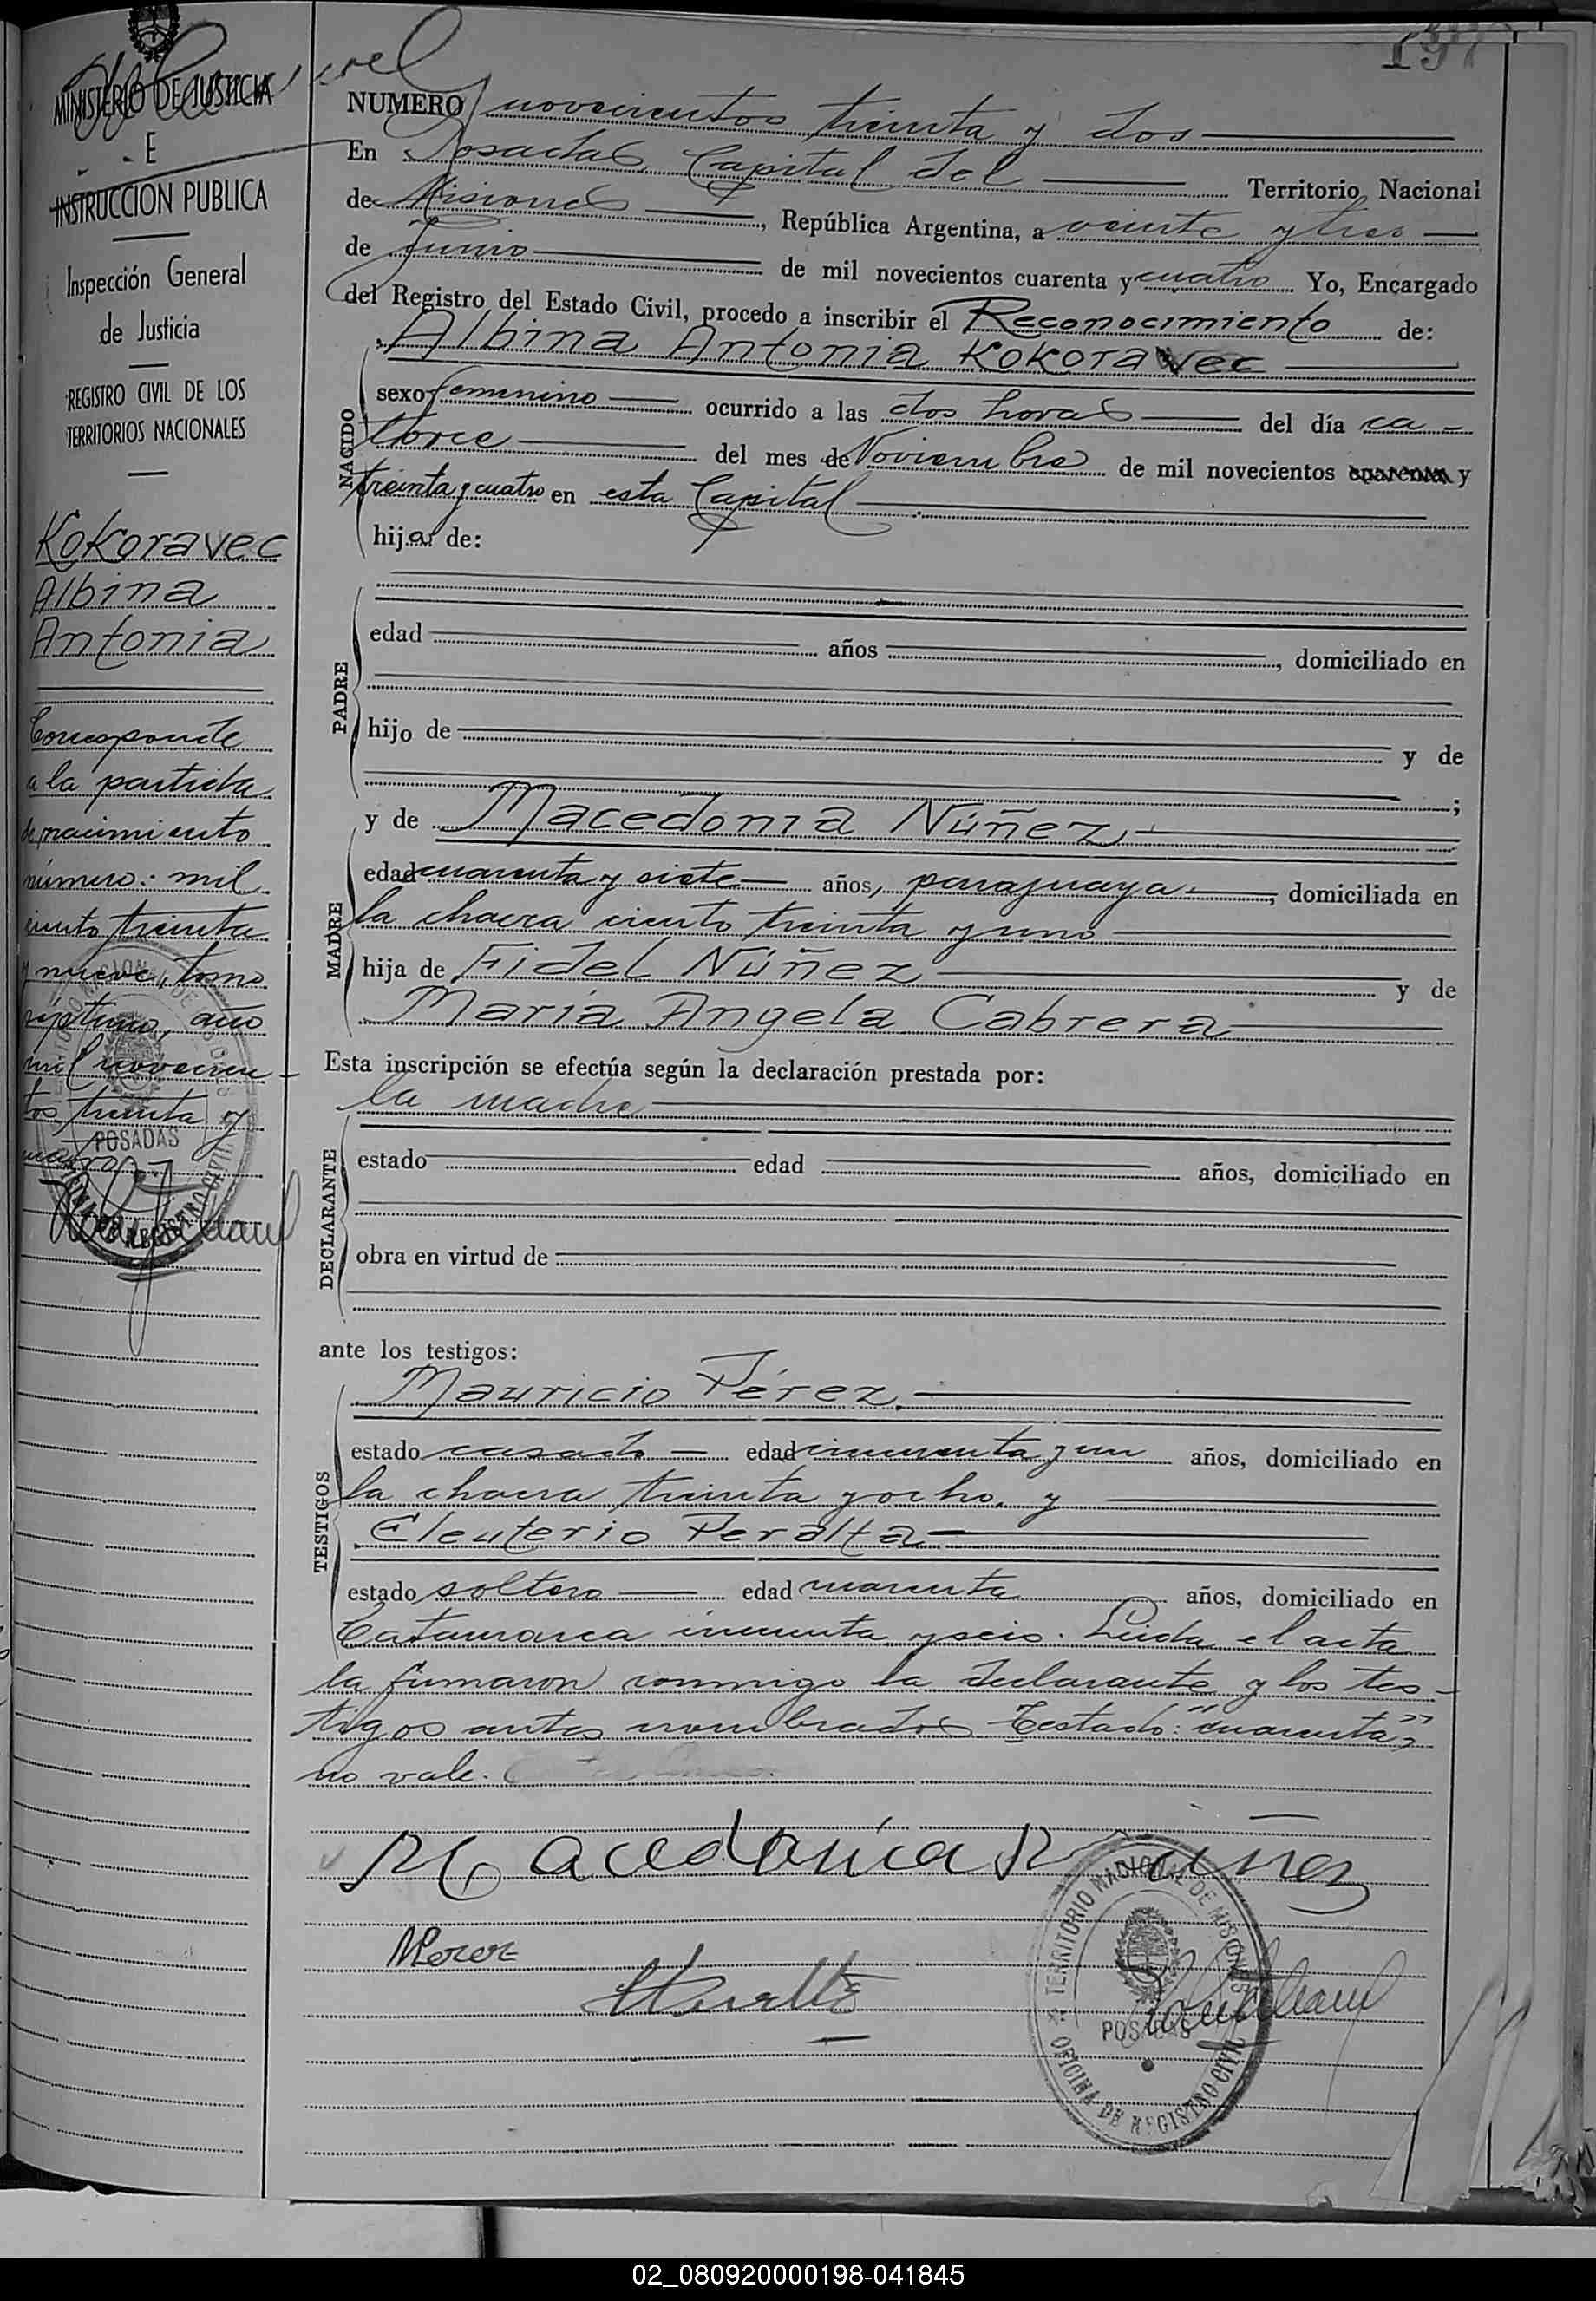 197
MINISTERIO DE JUSTICIA
E
INSTRUCCION PUBLICA
Inspección General
de Justicia
REGISTRO CIVIL DE LOS
TERRITORIOS NACIONALES
Kokoravec
Albina
Antonia
Corresponde
a la partida
de nacimiento
número: mil
ciento treinta
y nueve, tomo
séptimo, año
mil novecien-
tos treinta y
cuatro.-
NUMERO novecientos treinta y dos
En Posadas Capital del Territorio Nacional
de Misiones, República Argentina, a veinte y tres
de Junio de mil novecientos cuarenta y cuatro Yo, Encargado
del Registro del Estado Civil, procedo a inscribir el Reconocimiento de:
Albina Antonia Kokoravec
NACIDO
sexo femenino ocurrido a las dos horas del día ca-
torce del mes de Noviembre de mil novecientos cuarenta y
treinta y cuatro en esta Capital
hija de:
PADRE
edad años, domiciliado en
hijo de y de
;
y de Macedonia Núñez
MADRE
edad cuarenta y siete años, paraguaya, domiciliada en
la chacra ciento treinta y uno
hija de Fidel Núñez y de
María Angela Cabrera
Esta inscripción se efectúa según la declaración prestada por:
la madre
DECLARANTE
estado edad años, domiciliado en
obra en virtud de
ante los testigos:
Mauricio Pérez
TESTIGOS
estado casado edad cincuenta y un años, domiciliado en
la chacra treinta y ocho. y
Eleuterio Peralta
estado soltero edad cuarenta años, domiciliado en
Catamarca cincuenta y seis. Leída el acta
la firmaron conmigo la declarante y los tes-
tigos antes nombrados Testado: "cuarenta"
no vale.
Macedonia Nuñez
MPerez
TERRITORIO NACIONAL DE MISIONES
POSADAS
OFICINA DE REGISTRO CIVIL
02_080920000198-041845